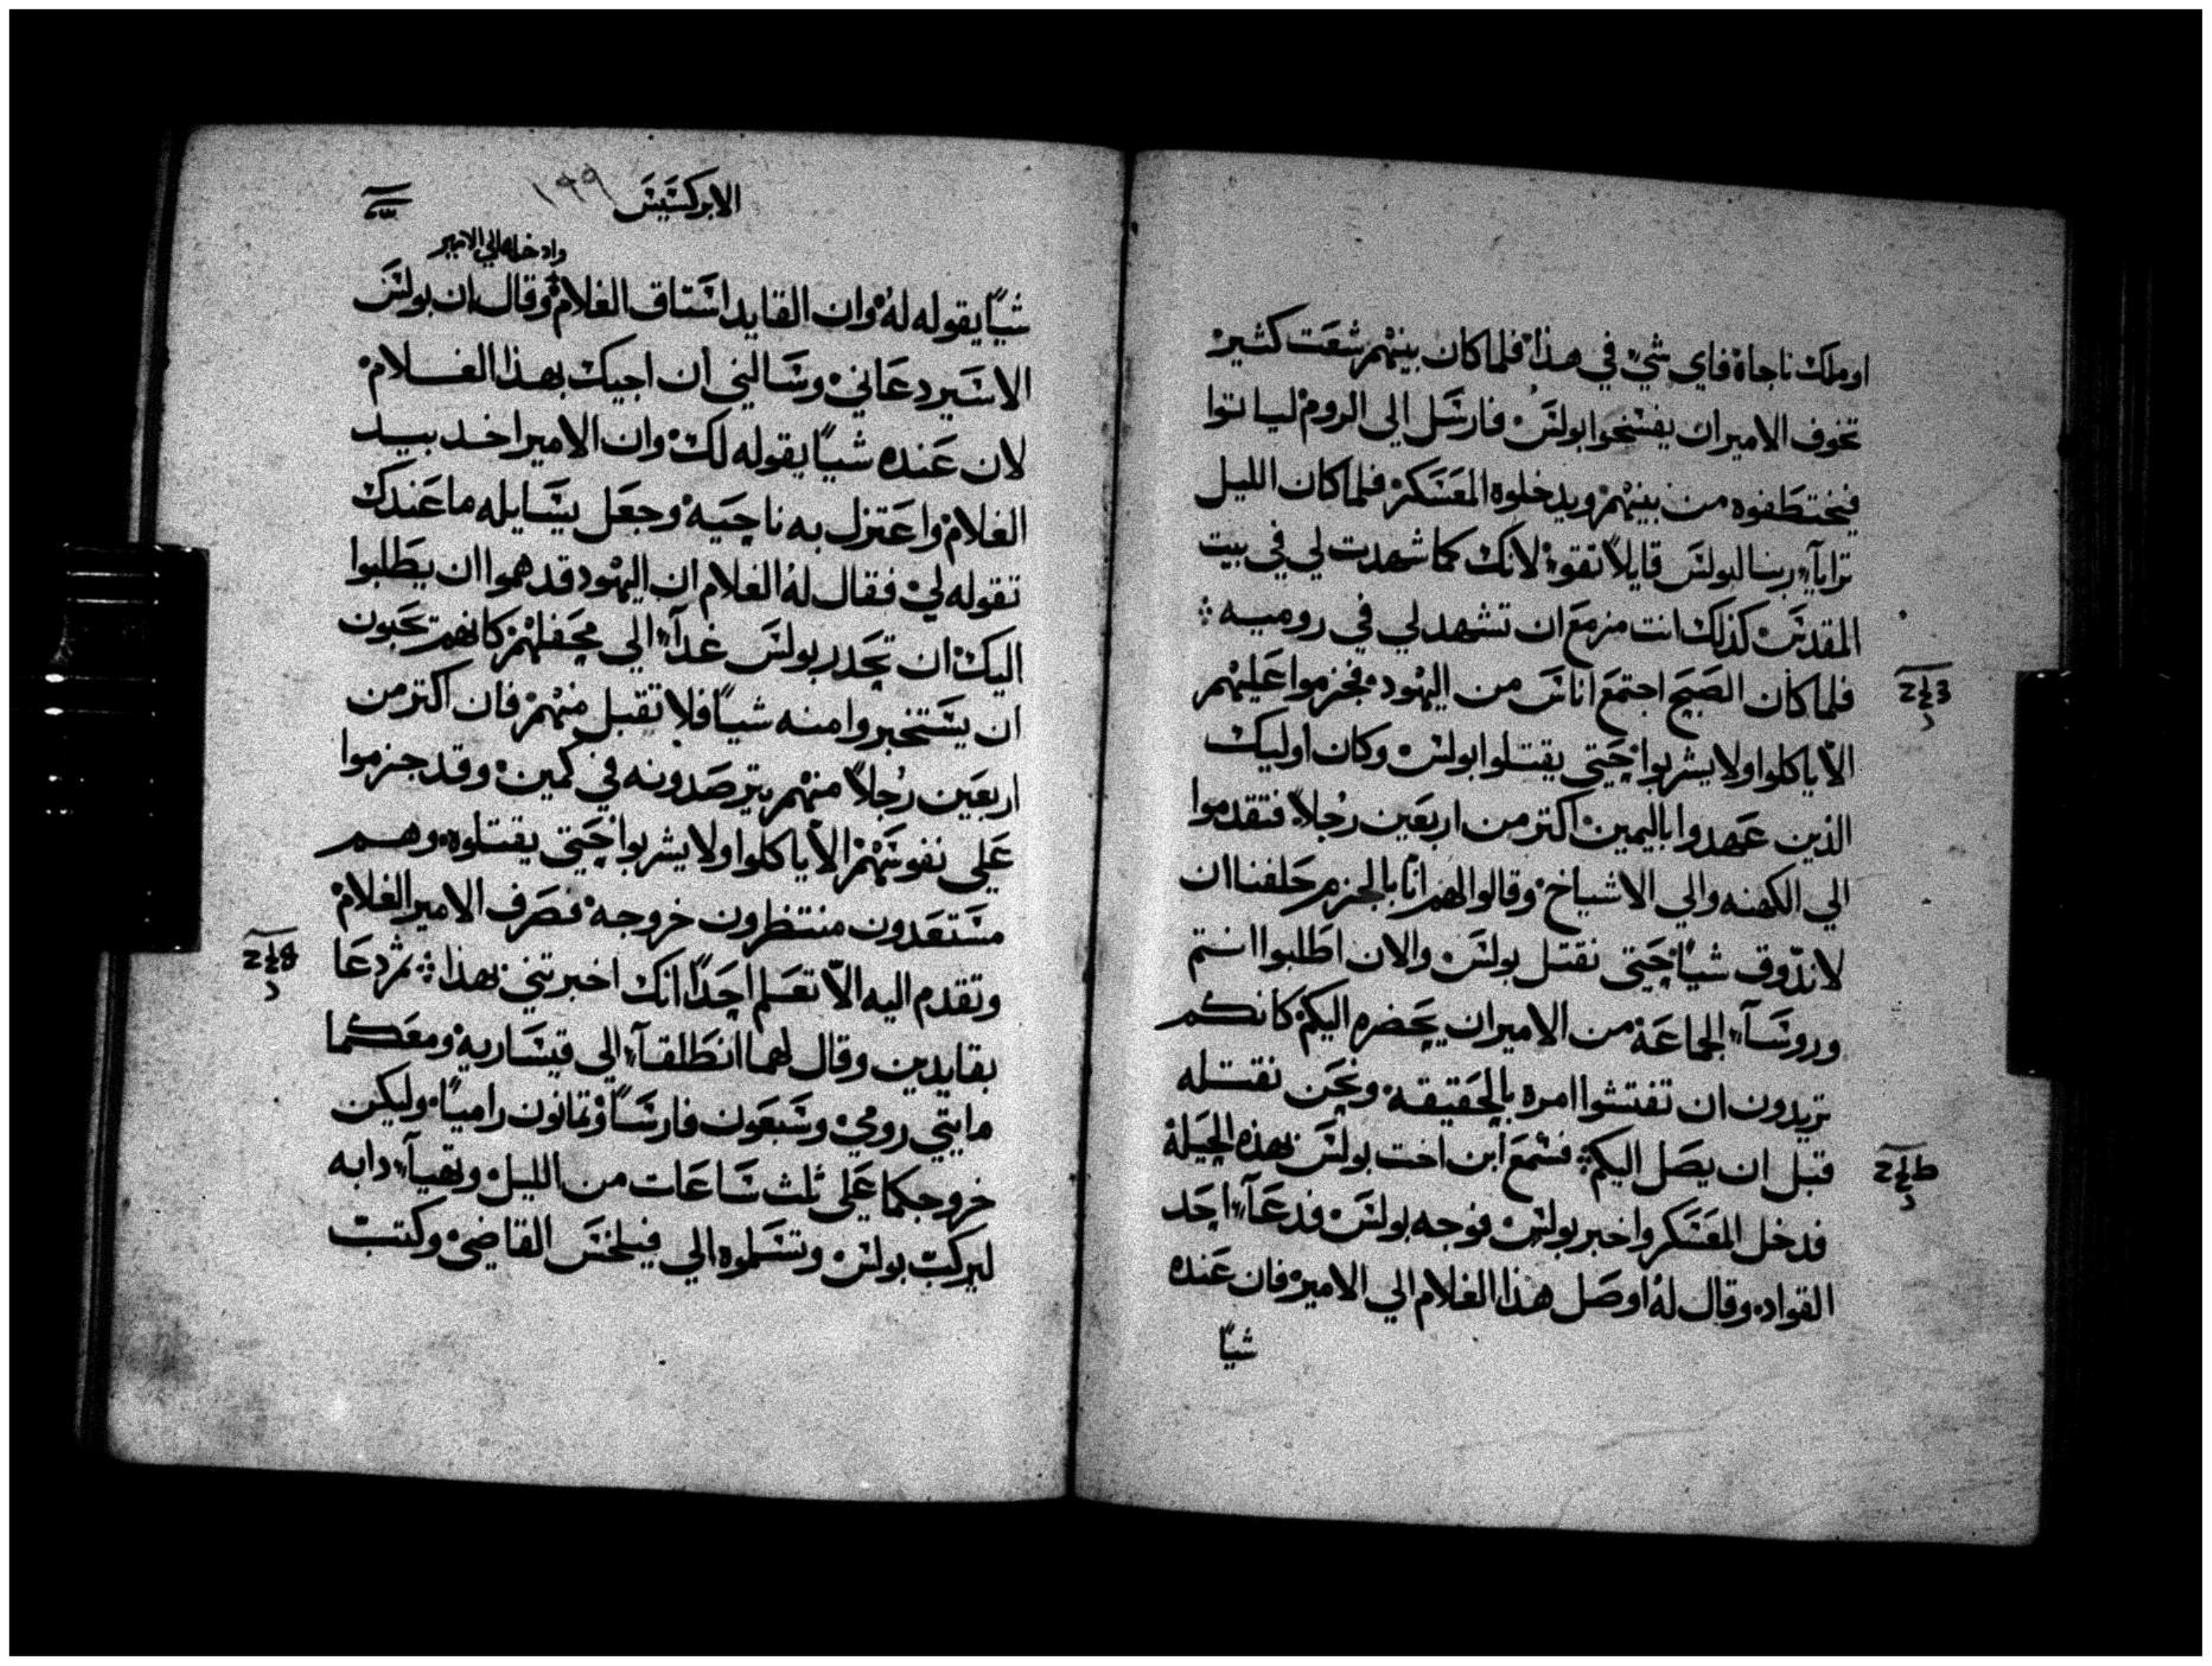 او ملك ناجاه فاي شي في هذا فلما كان بينهم شعت كثير
تخوف الامير ان يفسخوا بولس فارسل الي الروم لياتوا
فيختطفوه من بينهم ويدخلوه المعسكر فلما كان الليل
ترايآ ربنا لبولس قايلاً تقو لانك كما شهدت لي في بيت
المقدس كذلك انت مزمع ان تشهد لي في روميه
فلما كان الصبح اجتمع اناس من اليهود فجزموا عليهم
الّا ياكلوا ولا يشربوا حتي يقتلوا بولس وكان اوليك
الذين عهدوا باليمين اكتر من اربعين رجلاً فتقدموا
الي الكهنه والي الاشياخ وقالوا لهم انا بالجزم حلفنا ان
لا ندوق شياً حتي نقتل بولس والان اطلبوا انتم
وروسآ الجماعة من الامير ان يحضره اليكم كانكم
تريدون ان تفتشوا امره بالحقيقه ونحن نقتله
قبل ان يصل اليكم فسمع ابن اخت بولس بهذه الحيلة
فدخل المعسكر واخبر بولس فوجه بولس فدعآ احد
القواد وقال له اوصل هذا الغلام الي الامير فان عنده
شياً
الابركسيس ١٩٩
وادخله الي الامير
شياً يقوله له وان القايد استاق الغلام وقال ان بولس
الاسير دعاني وسالني ان اجيك بهذا الغلام
لان عنده شياً يقوله لك وان الامير اخد بيد
الغلام واعتزل به ناحيه وجعل يسايله ما عندك
تقوله لي فقال له الغلام ان اليهود قد هموا ان يطلبوا
اليك ان تحدر بولس غدآ الي محفلهم كانهم يحبون
ان يستخبروا منه شياً فلا تقبل منهم فان اكتر من
اربعين رجلاً منهم يترصدونه في كمين وقد جزموا
علي نفوسهم الّا ياكلوا ولا يشربوا حتي يقتلوه وهم
مستعدون منتظرون خروجه فصرف الامير الغلام
وتقدم اليه الّا تعلم احداً انك اخبرتني بهذا ثم دعا
بقايدين وقال لهما انطلقآ الي قيساريه ومعكما
مايتي رومي وسبعون فارساً وتمانون رامياً وليكن
خروجكما علي ثلث ساعات من الليل وتهيآ دابه
ليركب بولس وتسلموه الي فيلخس القاضي وكتب